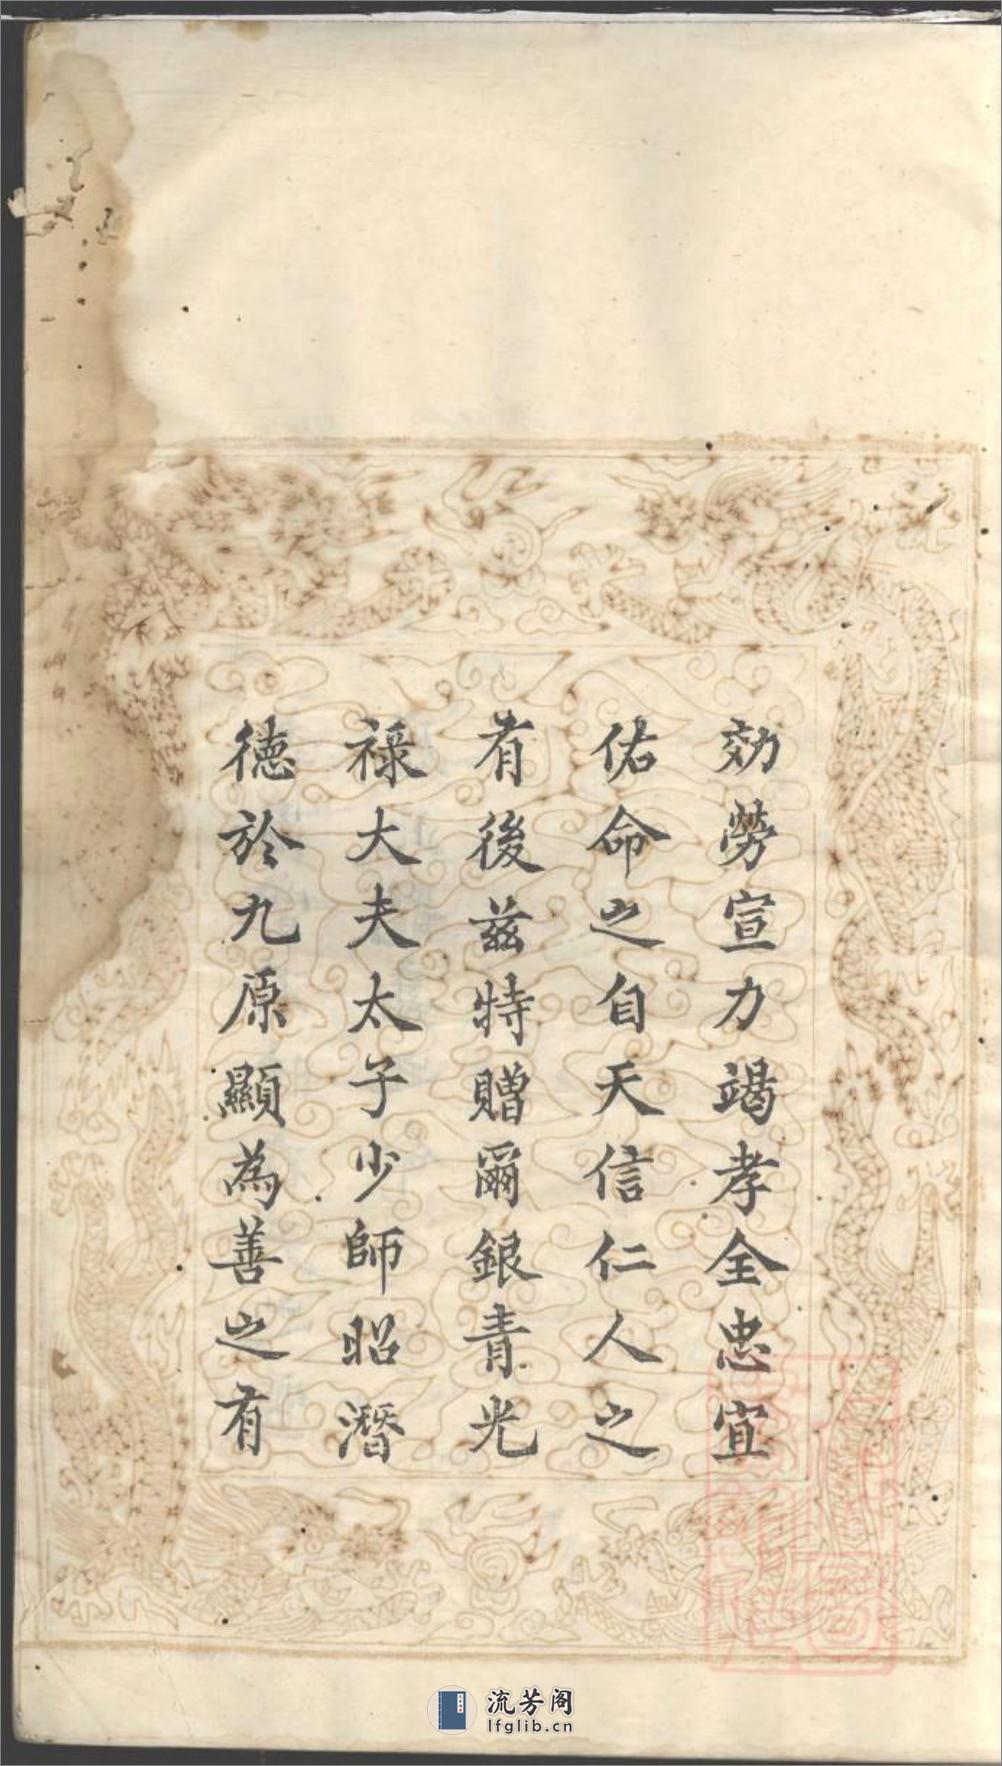 効勞宣力竭孝全忠宜
佑命之自天信仁人之
有後茲特贈爾銀青光
祿大夫太子少師昭潛
德於九原顯為善之有
流芳阁
lfglib.cn